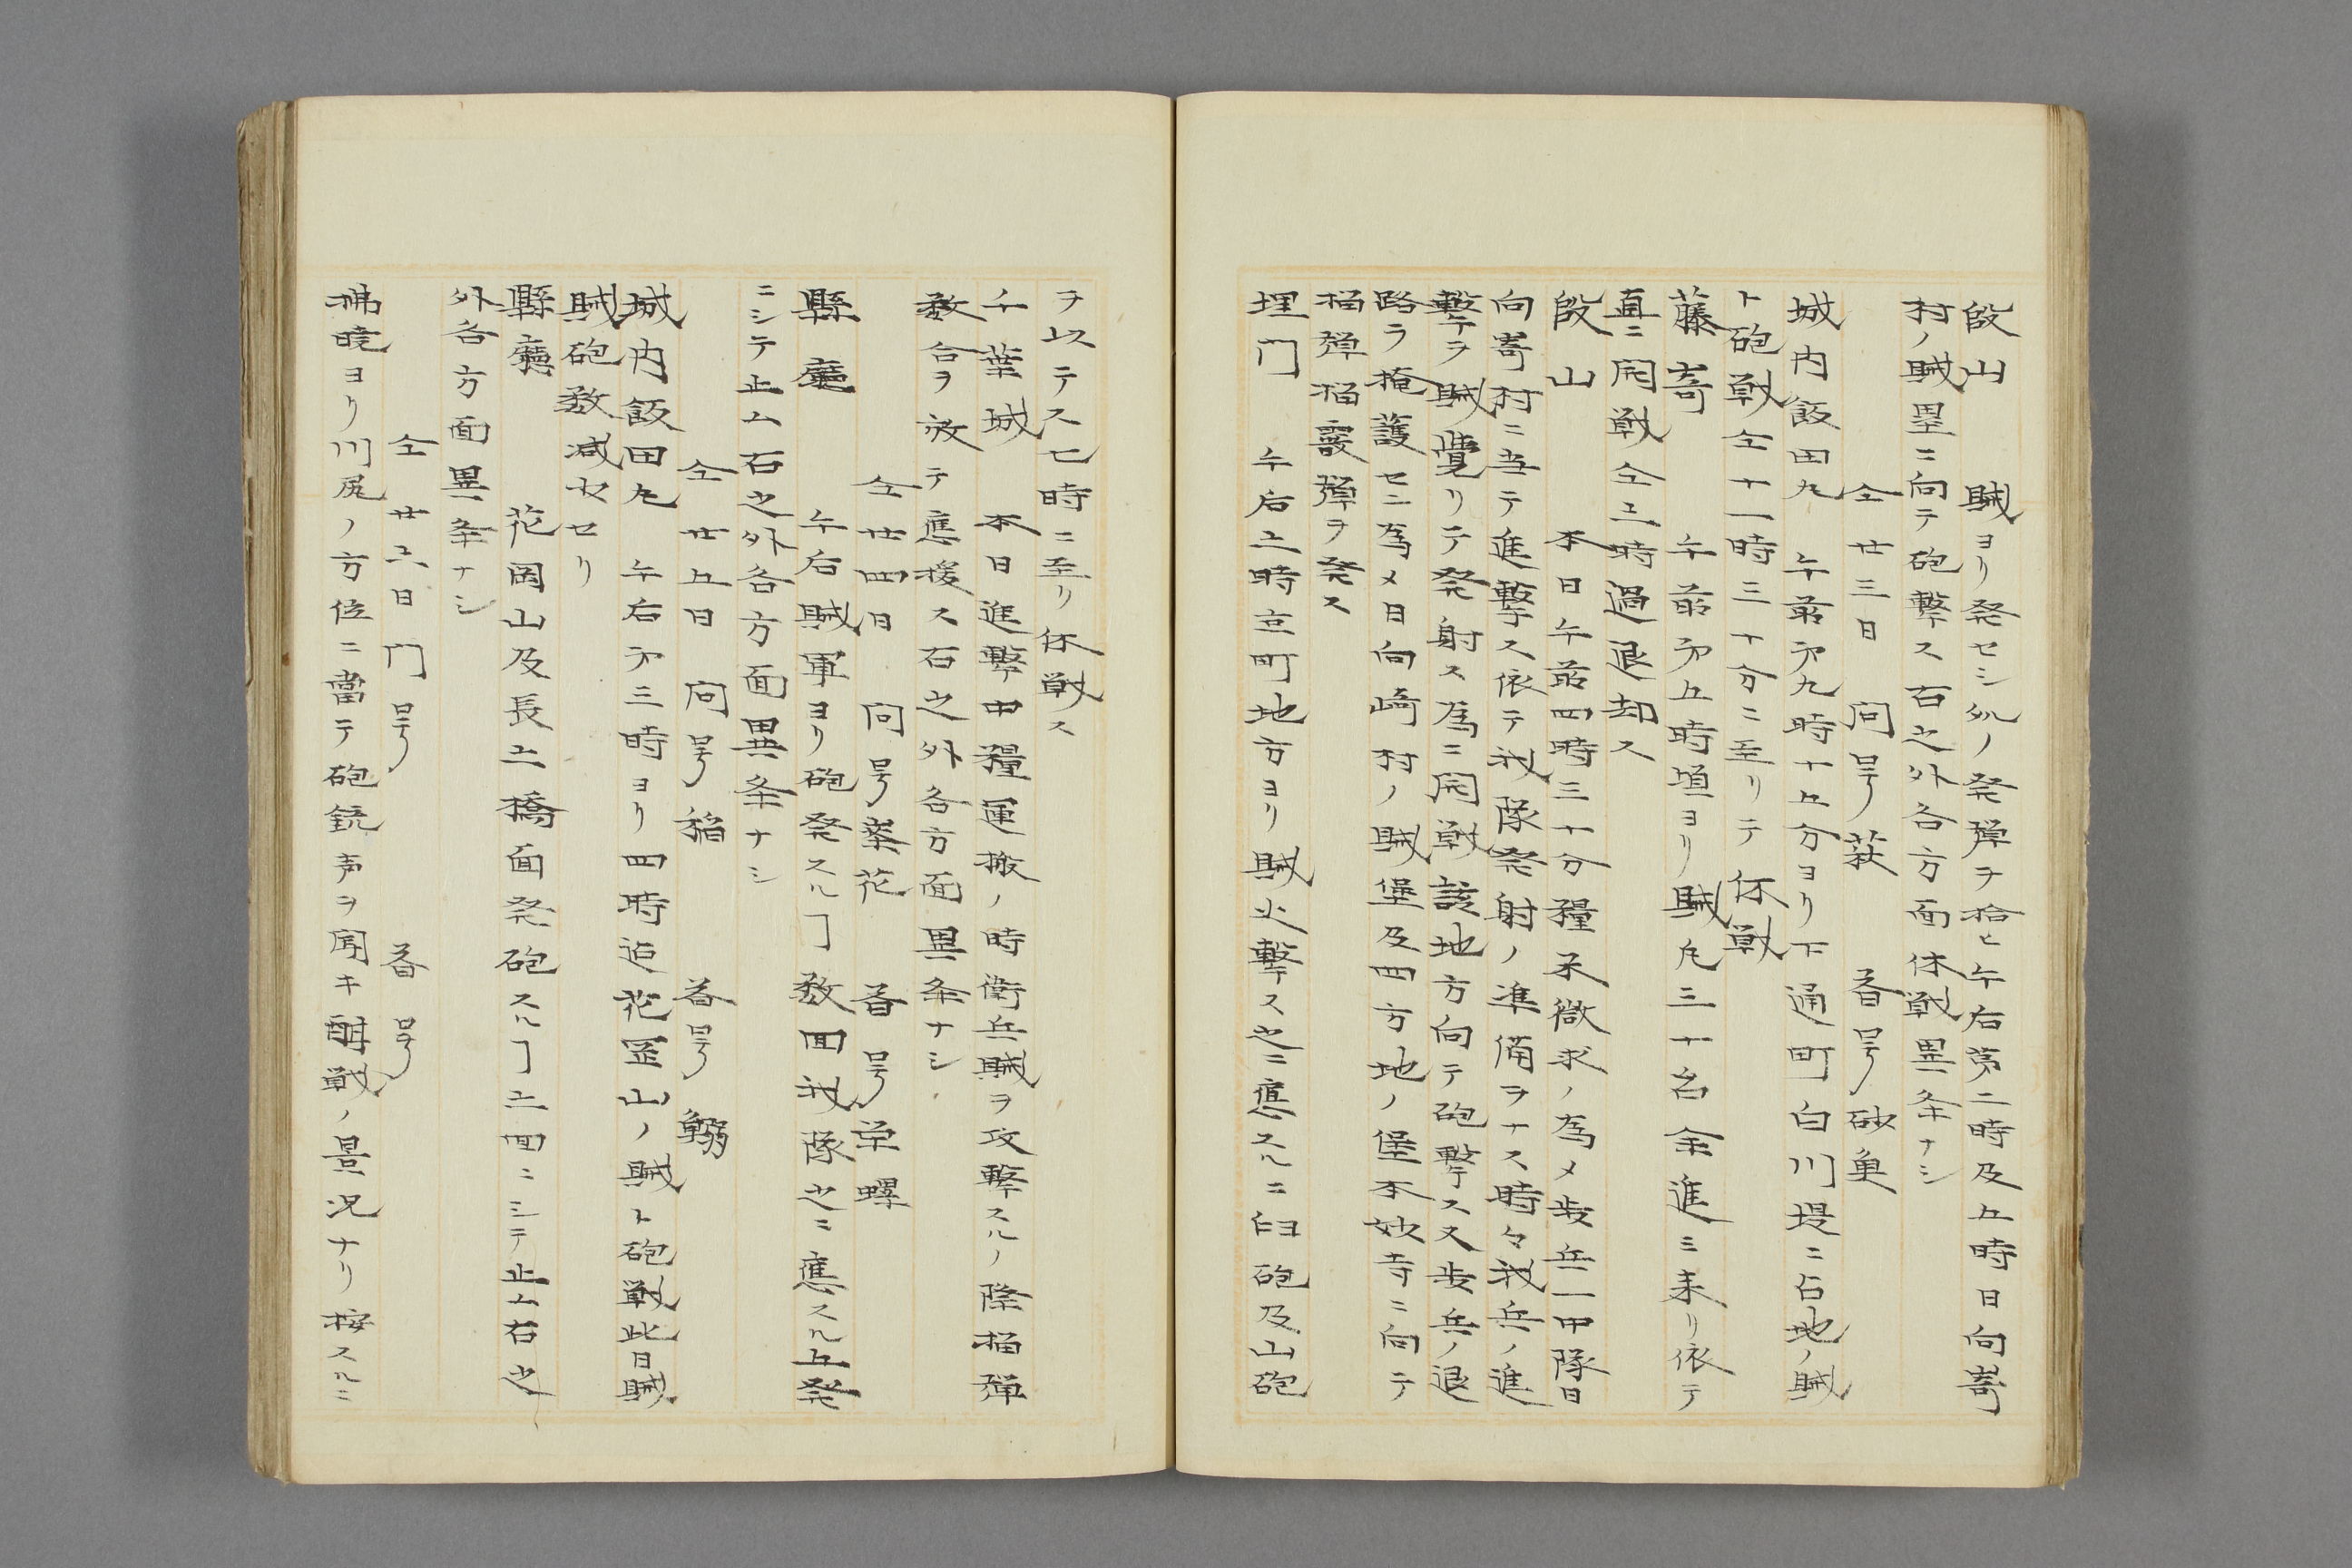 段山　賊ヨリ発セシ処ノ発弾ヲ拾ヒ午后第二時及五時日向嵜
村ノ賊塁ニ向テ砲撃ス右之外各方面休戦異条ナシ
仝廿三日　問号萩　荅号砂魚
城内飯田丸　午前㐧九時十五分ヨリ下通町白川堤ニ占地ノ賊
ト砲戦仝十一時三十分ニ至リテ休戦
藤嵜　午前㐧五時頃ヨリ賊凡三十名余進ミ来リ依テ
直ニ開戦仝五時過退却ス
段山　本日午前四時三十分糧米徴求ノ為メ歩兵一中隊日
向嵜村ニ至テ進撃ス依テ我隊発射ノ準備ヲナス時々我兵ノ進
撃ヲ賊覺リテ発射ス為ニ開戦該地方向テ砲撃ス又歩兵ノ退
路ヲ掩護セン為メ日向崎村ノ賊堡及四方地ノ堡本妙寺ニ向テ
榴弾榴霰弾ヲ発ス
埋門　午后五時京町地方ヨリ賊火撃ス之ニ應スルニ臼砲及山砲
ヲ以テス七時ニ至リ休戦ス
千葉城　本日進撃中糧運搬ノ時衛兵賊ヲ攻撃スルノ際榴弾
数合ヲ放テ應援ス右之外各方面異条ナシ
仝廿四日　問号菜花　荅号栄螺
縣廳　午后賊軍ヨリ砲発スルヿ数回我隊之ニ應スル五発
ニシテ止ム右之外各方面異条ナシ
仝廿五日　問号稲　荅号鰯
城内飯田丸　午后㐧三時ヨリ四時迠花罡山ノ賊ト砲戦此日賊
賊砲数減セリ
縣廳　花岡山及長五橋面発砲スルヿ五回ニシテ止ム右之
外各方面異条ナシ
仝廿六日　問号　荅号
拂暁ヨリ川尻ノ方位ニ當テ砲銃声ヲ聞キ酣戦ノ景況ナリ按スルニ